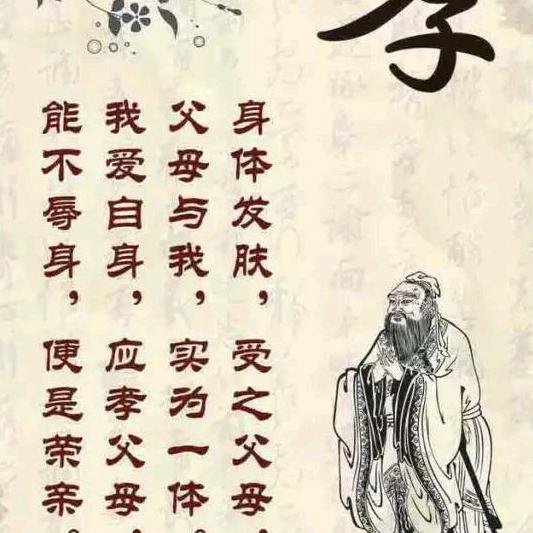 孝
身体发肤，受之父母，
父母与我，实为一体。
我爱自身，应孝父母，
能不辱身，便是荣亲。